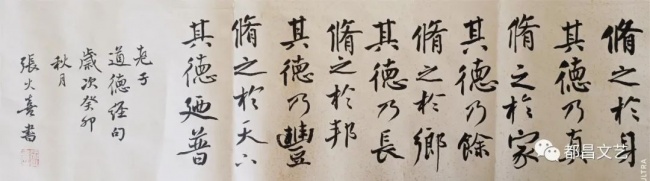 脩之於身
其德乃真
脩之於家
其德乃餘
脩之於鄉
其德乃長
脩之於邦
其德乃豐
脩之於天下
其德廼普
老子
道德经句
歲次癸卯
秋月
張火喜书
都昌文艺
ULTRA